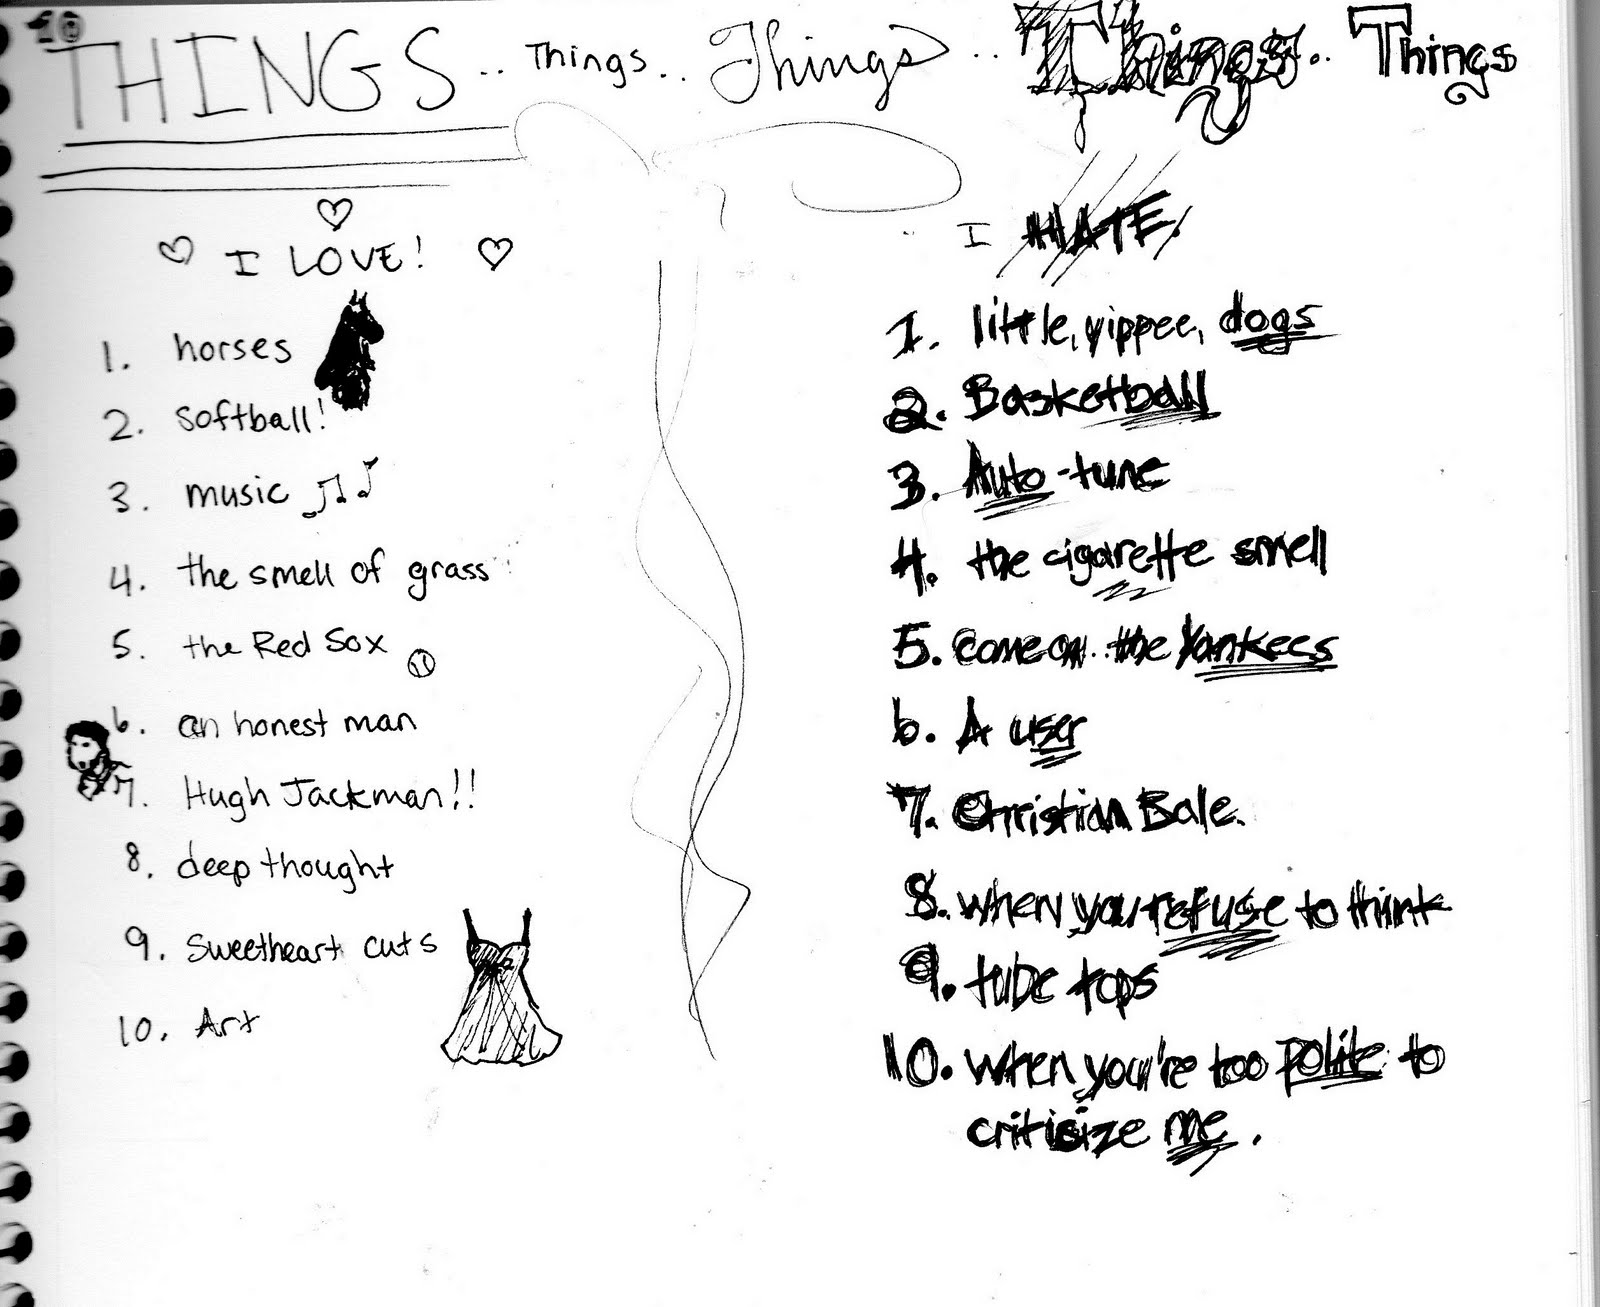 10
THINGS.. Things.. Things.. Things.. Things
I LOVE!
1. horses
2. softball!
3. music
4. the smell of grass
5. the Red Sox
6. an honest man
7. Hugh Jackman!!
8. deep thought
9. Sweetheart cuts
10. Art
I HATE
1. little, yippee, dogs
2. Basketball
3. Auto-tune
4. the cigarette smell
5. come on.. the Yankees
6. A user
7. Christian Bale.
8. when you refuse to think
9. tube tops
10. when you're too polite to
critisize me.